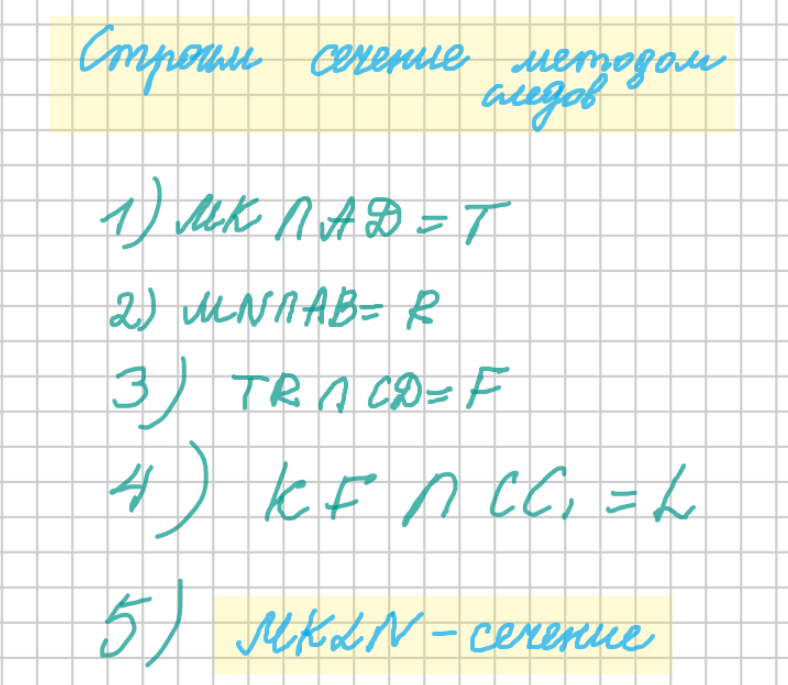 Строим сечение методом
следов
1) MK ∩ AD = T
2) MN ∩ AB = R
3) TR ∩ CD = F
4) KF ∩ CC₁ = L
5) MKLN - сечение